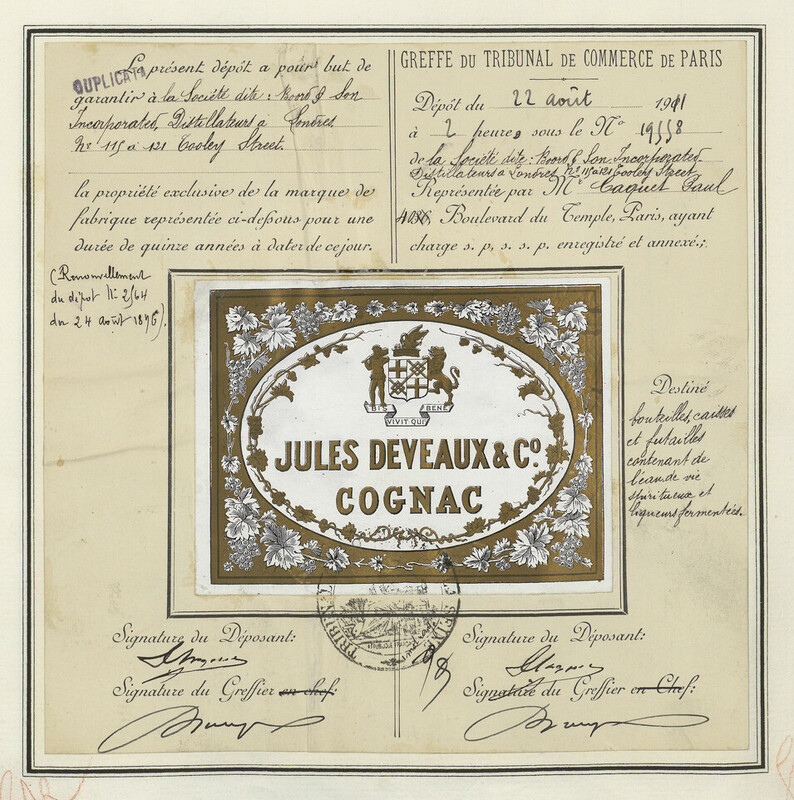 DUPLICATA
Le présent dépôt a pour but de
garantir à la Société dite: Boord & Son
Incorporated, Distillateurs à Londres.
Nos 115 à 121 Tooley Street.
la propriété exclusive de la marque de
fabrique représentée ci-dessous pour une
durée de quinze années à dater de ce jour.
(Renouvellement
du dépôt No 2564
du 24 août 1896).
GREFFE DU TRIBUNAL DE COMMERCE DE PARIS
Dépôt du 22 août 1911
à 2 heures sous le No 19558
de la Société dite: Boord & Son Incorporated.
Distillateurs à Londres Nos 115 à 121 Tooley Street
Représentée par Mr Caquet Paul
Boulevard du Temple, Paris, ayant
charge s. p. s. s. p. enregistré et annexé.;
BIS BENE
VIVIT QUI
JULES DEVEAUX & Co.
COGNAC
Destiné
bouteilles, caisses
et futailles
contenant de
l'eau de vie
spiritueux et
liqueurs fermentées.
TRIBUNAL DE LA SEINE
RÉPUBLIQUE FRANÇAISE
Signature du Déposant:
Signature du Greffier en chef:
Signature du Déposant:
Signature du Greffier en Chef: